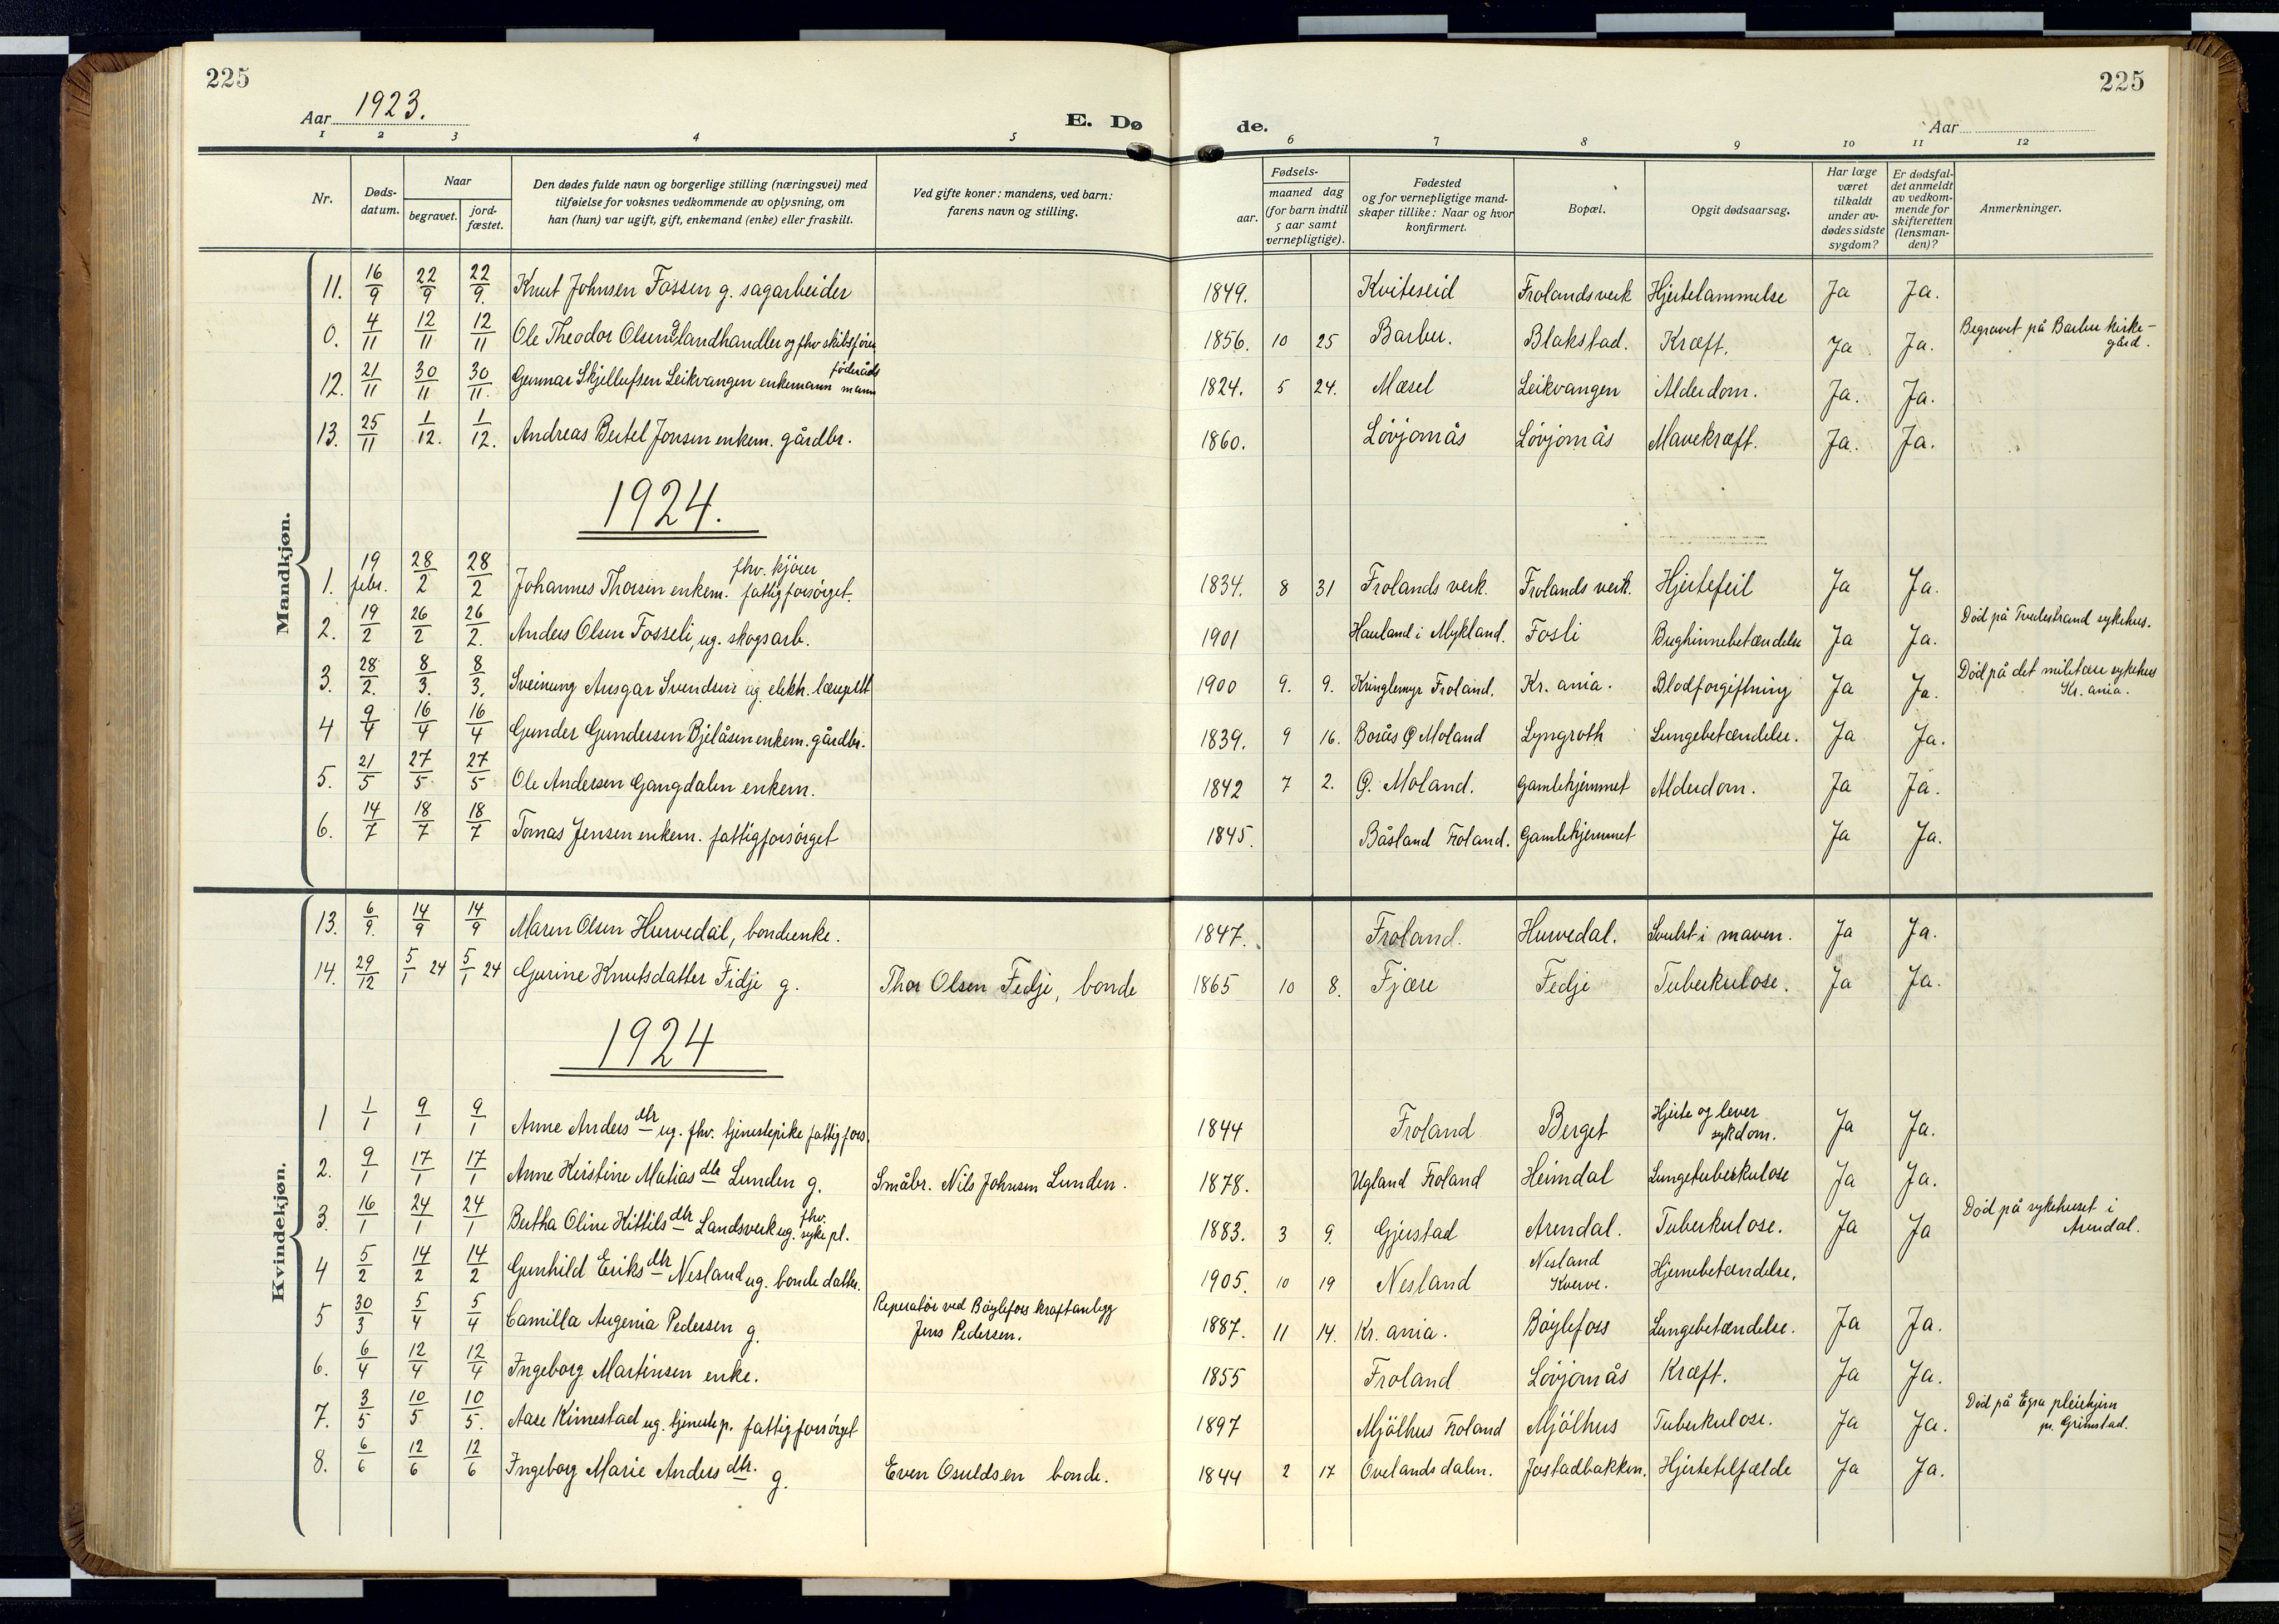 225
225
Aar 1923.
E. Dø
de.
Aar
1 2 3 4 5 6 7 8 9 10 11 12
Nr.
Døds-
datum.
Naar
begravet.
jord-
fæstet.
Den dødes fulde navn og borgerlige stilling (næringsvei) med
tilføielse for voksnes vedkommende av oplysning, om
han (hun) var ugift, gift, enkemand (enke) eller fraskilt.
Ved gifte koner: mandens, ved barn:
farens navn og stilling.
Fødsels-
aar.
maaned dag
(for barn indtil
5 aar samt
vernepligtige).
Fødested
og for vernepligtige mand-
skaper tillike: Naar og hvor
konfirmert.
Bopæl.
Opgit dødsaarsag.
Har læge
været
tilkaldt
under av-
dødes sidste
sygdom?
Er dødsfal-
det anmeldt
av vedkom-
mende for
skifteretten
(lensman-
den)?
Anmerkninger.
Mandkjøn.
11. 16/9 22/9 22/9. Knut Johnsen Fossen g. sagarbeider 1849. Kviteseid Frolandsverk Hjertelammelse Ja Ja.
0. 4/11 12/11 12/11 Ole Theodor Olsen g. landhandler og fhv skibsfører 1856. 10 25 Barbu. Blakstad. Kræft. Ja Ja. Begravet på Barbu kirke-
gård.
12. 21/11 30/11 30/11. Gunnar Skjellufsen Leikvangen enkemann föderåds
mann 1824. 5 24. Mæsel Leikvangen Alderdom. Ja. Ja.
13. 25/11 1/12. 1/12. Andreas Bertel Jonsen enkem. gårdbr. 1860. Lövjomås Lövjomås Mavekræft. Ja. Ja.
1924.
1. 19 febr. 28/2 28/2 Johannes Thorsen enkem. fhv. kjörer
fattigforsörget. 1834. 8 31 Frolands verk. Frolands verk. Hjertefeil Ja Ja.
2. 19/2 26/2 26/2. Anders Olsen Fosseli, ug. skogsarb. 1901 Hauland i Mykland. Fosli Bughinnebetændelse Ja Ja. Död på Tvedestrand sykehus.
3. 28/2. 8/3. 8/3. Sveinung Ansgar Svendsen ug elektr. 1900 9. 9. Kringlemyr Froland. Kr. ania. Blodforgiftning Ja Ja. Död på det militære sykehus
Kr. ania.
4 9/4 16/4 16/4 Gunder Gundersen Bjelåsen enkem. gårdbr. 1839. 9 16. Borås Ø Moland Lyngroth Lungebetændelse. Ja Ja.
5. 21/5 27/5 27/5 Ole Andersen Gangdalen enkem. 1842 7 2. Ø. Moland. Gamlehjemmet Alderdom. Ja Ja.
6. 14/7 18/7 18/7 Tomas Jensen enkem. fattigforsörget 1845. Båsland Froland. Gamlehjemmet Ja Ja.
Kvindekjøn.
13. 6/9. 14/9 14/9 Maren Olsen Hurvedal, bondeenke. 1847. Froland. Hurvedal. Svulst i maven. Ja Ja.
14. 29/12 5/1 24 5/1 24 Gurine Knutsdatter Fidje g. Thor Olsen Fedje, bonde 1865 10 8. Fjære Fedje Tuberkulose. Ja Ja.
1924
1 1/1 9/1 9/1 Anne Anders dtr ug. fhv. tjenestepike fattigfors. 1844 Froland Berget Hjerte og lever
sykdom. Ja Ja.
2. 9/1 17/1 17/1 Anne Kirstine Matias dtr Lunden g. Småbr. Nils Johnsen Lunden. 1878. Ugland Froland Heimdal Lungetuberkulose Ja Ja.
3. 16/1 24/1 24/1 Bertha Oline Kittils dtr Landsverk ug. fhv.
sykepl. 1883. 3 9. Gjerstad Arendal. Tuberkulose. Ja Ja Död på sykehuset i
Arendal.
4 5/2 14/2 14/2 Gunhild Eriks dtr Nesland ug. bonde datter. 1905. 10 19 Nesland Nesland
Kverve. Hjernebetændelse.
5 30/3 5/4 5/4 Camilla Augenia Pedersen g. Reperatör ved Böylefoss kraftanlegg
Jens Pedersen. 1887. 11 14. Kr. ania. Böylefoss Lungebetændelse. Ja Ja.
6. 6/4 12/4 12/4 Ingeborg Martinsen enke. 1855 Froland Lövjomås Kræft. Ja Ja.
7. 3/5 10/5 10/5. Aase Kimestad ug. tjenestep. fattigforsörget 1897 Mjölhus Froland Mjölhus Tuberkulose. Ja Ja. Död på pleiehjem
pr. Grimstad.
8. 6/6 12/6 12/6 Ingeborg Marie Anders dtr. g. Even Osuldsen bonde. 1844 2 17 Ovelandsdalen. Jostadbakken. Hjertetilfælde Ja Ja.